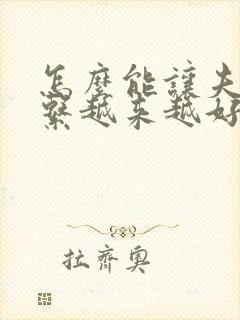 怎麼能讓夫
繫越来越好
拉齊奧